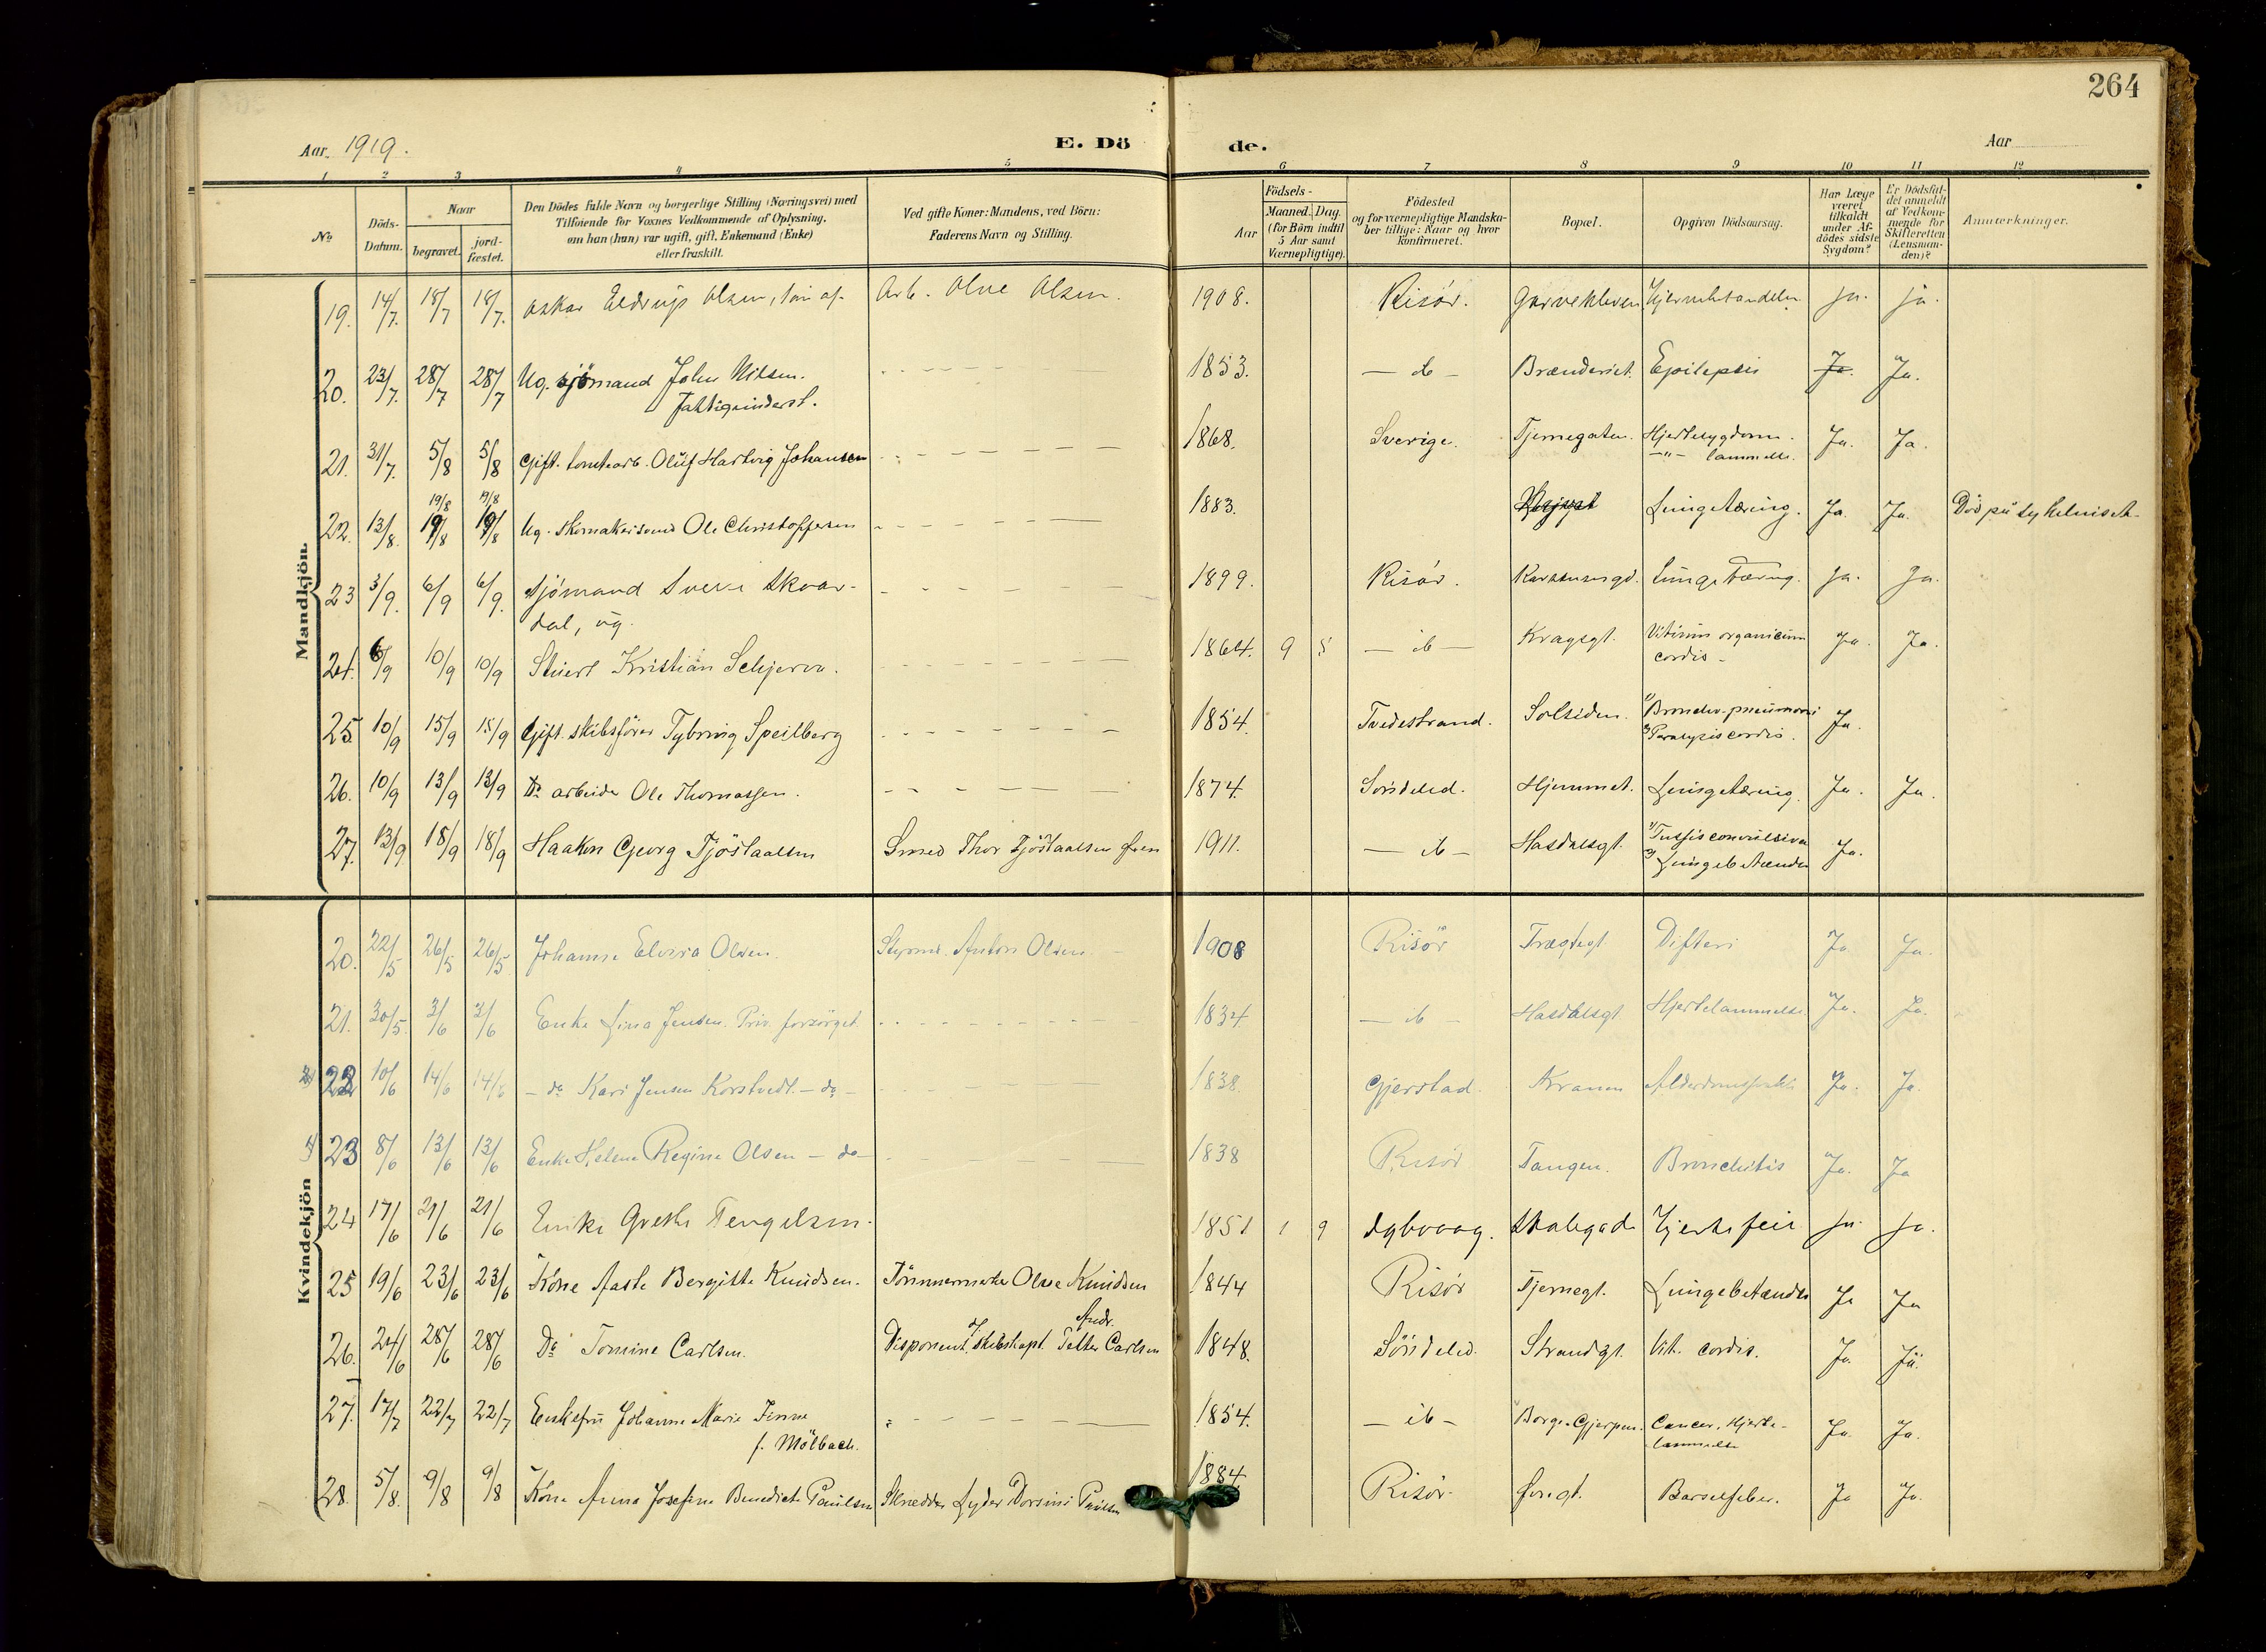 264
Aar. 1919.
E. Dö
de.
Aar
1 2 3 4 5 6 7 8 9 10 11 12
No
Döds-Datum.
Naar
begravet.
jord-fæstet.
Den Dödes fulde Navn og borgerlige Stilling (Næringsvei) med
Tilföiende for Voxnes Vedkommende af Oplysning,
om han (hun) var ugift, gift, Enkemand (Enke)
eller fraskilt.
Ved gifte Koner: Mandens, ved Börn:
Faderens Navn og Stilling.
Födsels-
Aar
Maaned. Dag.
(for Börn indtil
5 Aar samt
Værnepligtige).
Födested
og for værnepligtige Mandska-
ber tillige: Naar og hvor
konfirmeret.
Bopæl.
Opgiven Dödsaarsag.
Har Læge
været
tilkaldt
under Af-
dödes sidste
Sygdom?
Er Dödsfal-
det anmeldt
af Vedkom-
mende for
Skifteretten
(Lensman-
den)?
Anmærkninger.
Mandkjön.
19. 14/7. 18/7 18/7. Oskar Eldrup Olsen, søn af Arb. Olve Olsen. 1908. Risör. Garvekleven Hjernebetændelse ja. ja.
20. 23/7. 28/7 28/7 Ug. sjömand John Nilsen. - - - 1853. — ib — Brænderiet. Epilepsi Ja. Ja.
21. 31/7. 5/8 5/8 Gift. tomtearb. Oluf Hartvig Johansen - - - 1868. Sverige. Tjernegaten. Hjertesygdom. Ja. Ja.
—"— lammelse.
19/8 19/8
22. 13/8. 19/8 19/8 Ug. Skomakersvend Ole Christoffersen - - - 1883. Lungetæring. Ja. Ja. Död på sykehuset.
23 3/9. 6/9 6/9. Sjömand Sverre Skvar-
dal, ug. - - - 1899. Risör. Lungetæring. ja. Ja.
24. 6/9 10/9 10/9 Kristian Schjerva. - - - 1864. 9 5 — ib — Kragsgt. Vitium organicum
cordis - Ja. Ja.
25. 10/9 15/9 15/9 Gift. skibsförer Tybring Speilberg - - - 1854. Tvedestrand. Solsiden. 1) Broncho-pneumoni Ja.
2) Paralysis cordis.
26. 10/9 13/9 13/9 Do arbeider Ole Thomassen. - - - 1874. Söndeled. Hjemmet. Lungetæring. Ja. Ja.
27. 13/9 18/9 18/9 Haakon Georg Tjöstaalsen Smed Thor Tjöstaalsen 1911. — ib — Hasdalsgt. 1) Tussis convulsiva Ja.
2)
Kvindekjön
20. 22/5 26/5 26/5 Johanne Elvira Olsen. Styrmd. Anton Olsen. 1908 Risör Trægdegt Difteri Ja Ja.
21. 30/5. 3/6 3/6 Enke Lina Jensen. Priv. forsörget. - - - 1834 — ib — Hasdalsgt Hjertelammelse. Ja. Ja.
22 10/6 14/6 14/6 — do Kari Jensen Korstvedt — do — - - - 1838. Gjerstad. Kranen Ja. Ja.
23 8/6 13/6 13/6 Enke Helene Regine Olsen — do — - - - 1838 Risör Tangen. Bronchitis Ja. Ja
24 17/6 21/6 21/6 Enke Grethe Tengelsen. 1851 1 9 dybvaag. Hjertefeil Ja. ja.
25 19/6 23/6 23/6 Kone Aaste Bergitte Knudsen. Tömmermester Olve Knudsen 1844 Risör Tjernegt. Lungebetændelse Ja Ja
Andr.
26. 24/6 28/6 28/6 Do Tomine Carlsen. Disponent, f. skibskapt. Petter Carlsen 1848. Söndeled. Strandgt. Vit. cordis. Ja. Ja.
27. 17/7 22/7 22/7 Enkefru Johanne Marie Finne
f. Mölbach. - - - 1854. — ib — Borge. Gjerpen. Cancer. Hjerte-
lammelse Ja. Ja.
28. 5/8. 9/8 9/8 Kone Anna Josefine Benedicte Paulsen Skrædder Lyder Dorsius Paulsen 1884 Risör. Barselfeber. Ja Ja.